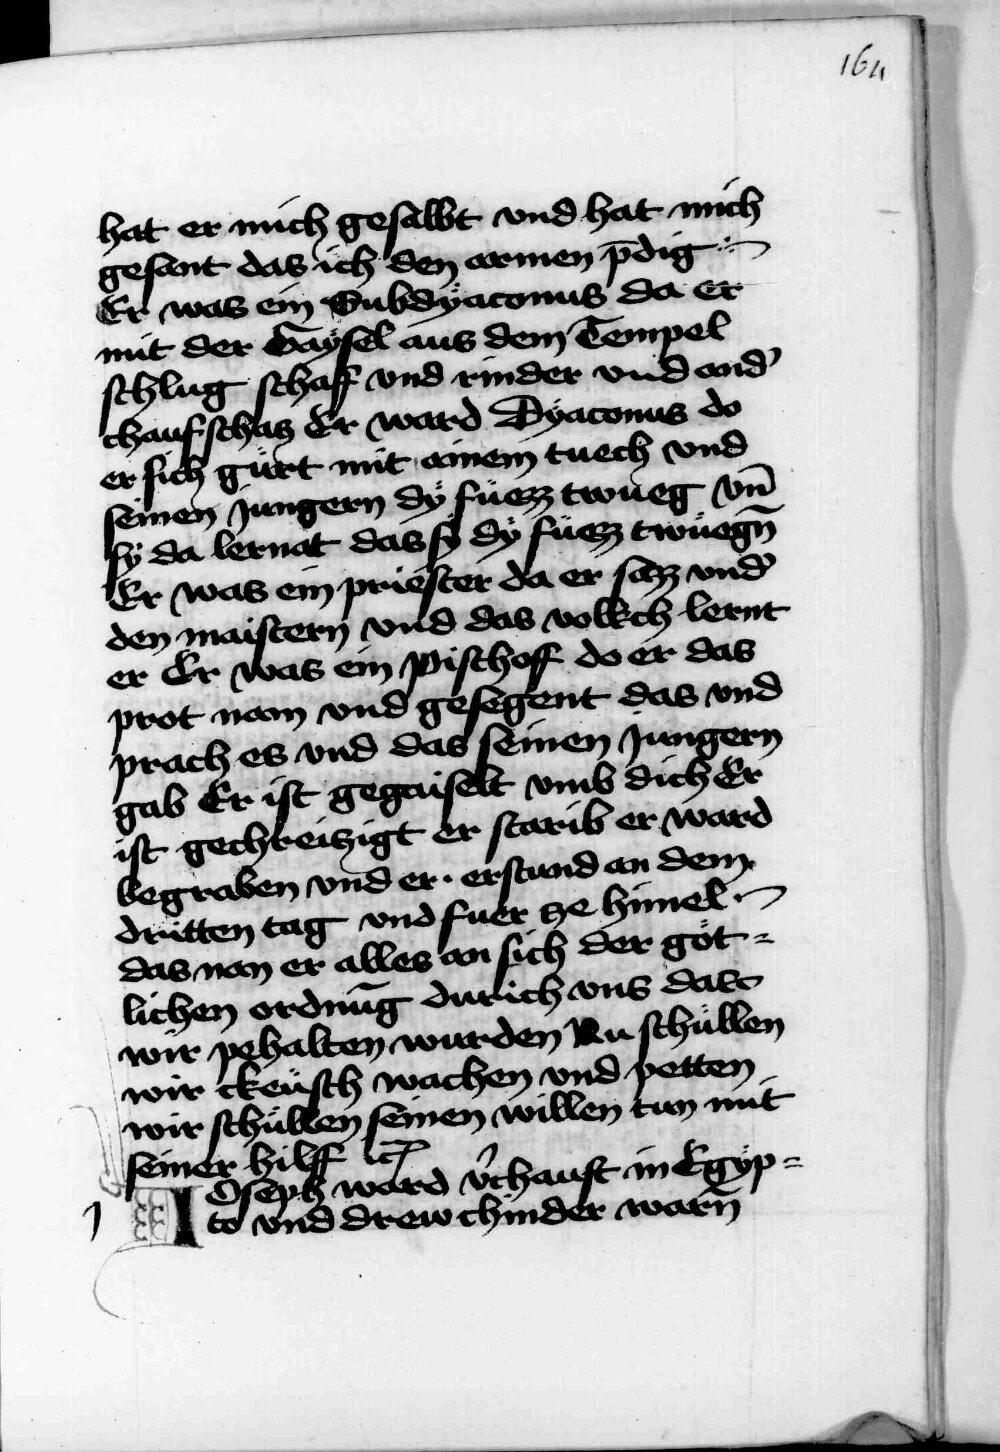 164
hat er mich gesalbt vnd hat mich
gesant das ich den armen p̄dig
Er was ein Subdÿaconus da er
mit der Gaÿsel aus dem Tempel
schlug schaff vnd rinder vnd and'
chaufschatz Er ward Dÿaconus do
er sich gürt mit ainem tuech vnd
seinen Jungern dÿ füezz twueg vn̄
sÿ da lernat das sy dÿ füezz twüegn̄
Er was ein priester da er sazz vnd'
den maistern vnd das volkch lernt
er Er was ein Pischoff do er das
prot nam vnd gesegent das vnd
prach es vnd das seinen Jungern
gab Er ist gegaiselt vmb dich Er
ist gechreiczigt er starib er ward
begraben vnd er · erstund an dem
dritten tag vnd fuer ze him̄el
das nam er alles an sich der göt=
lichen ordnūg durich vns das
wir pehalten wurden Nu schüllen
wir ckeüsch wachen vnd petten
wir schüllen seinen willen tun mit
seiner hilff
IOseph ward v'chauft in Egÿp=
to vnd drew chinder warn̄